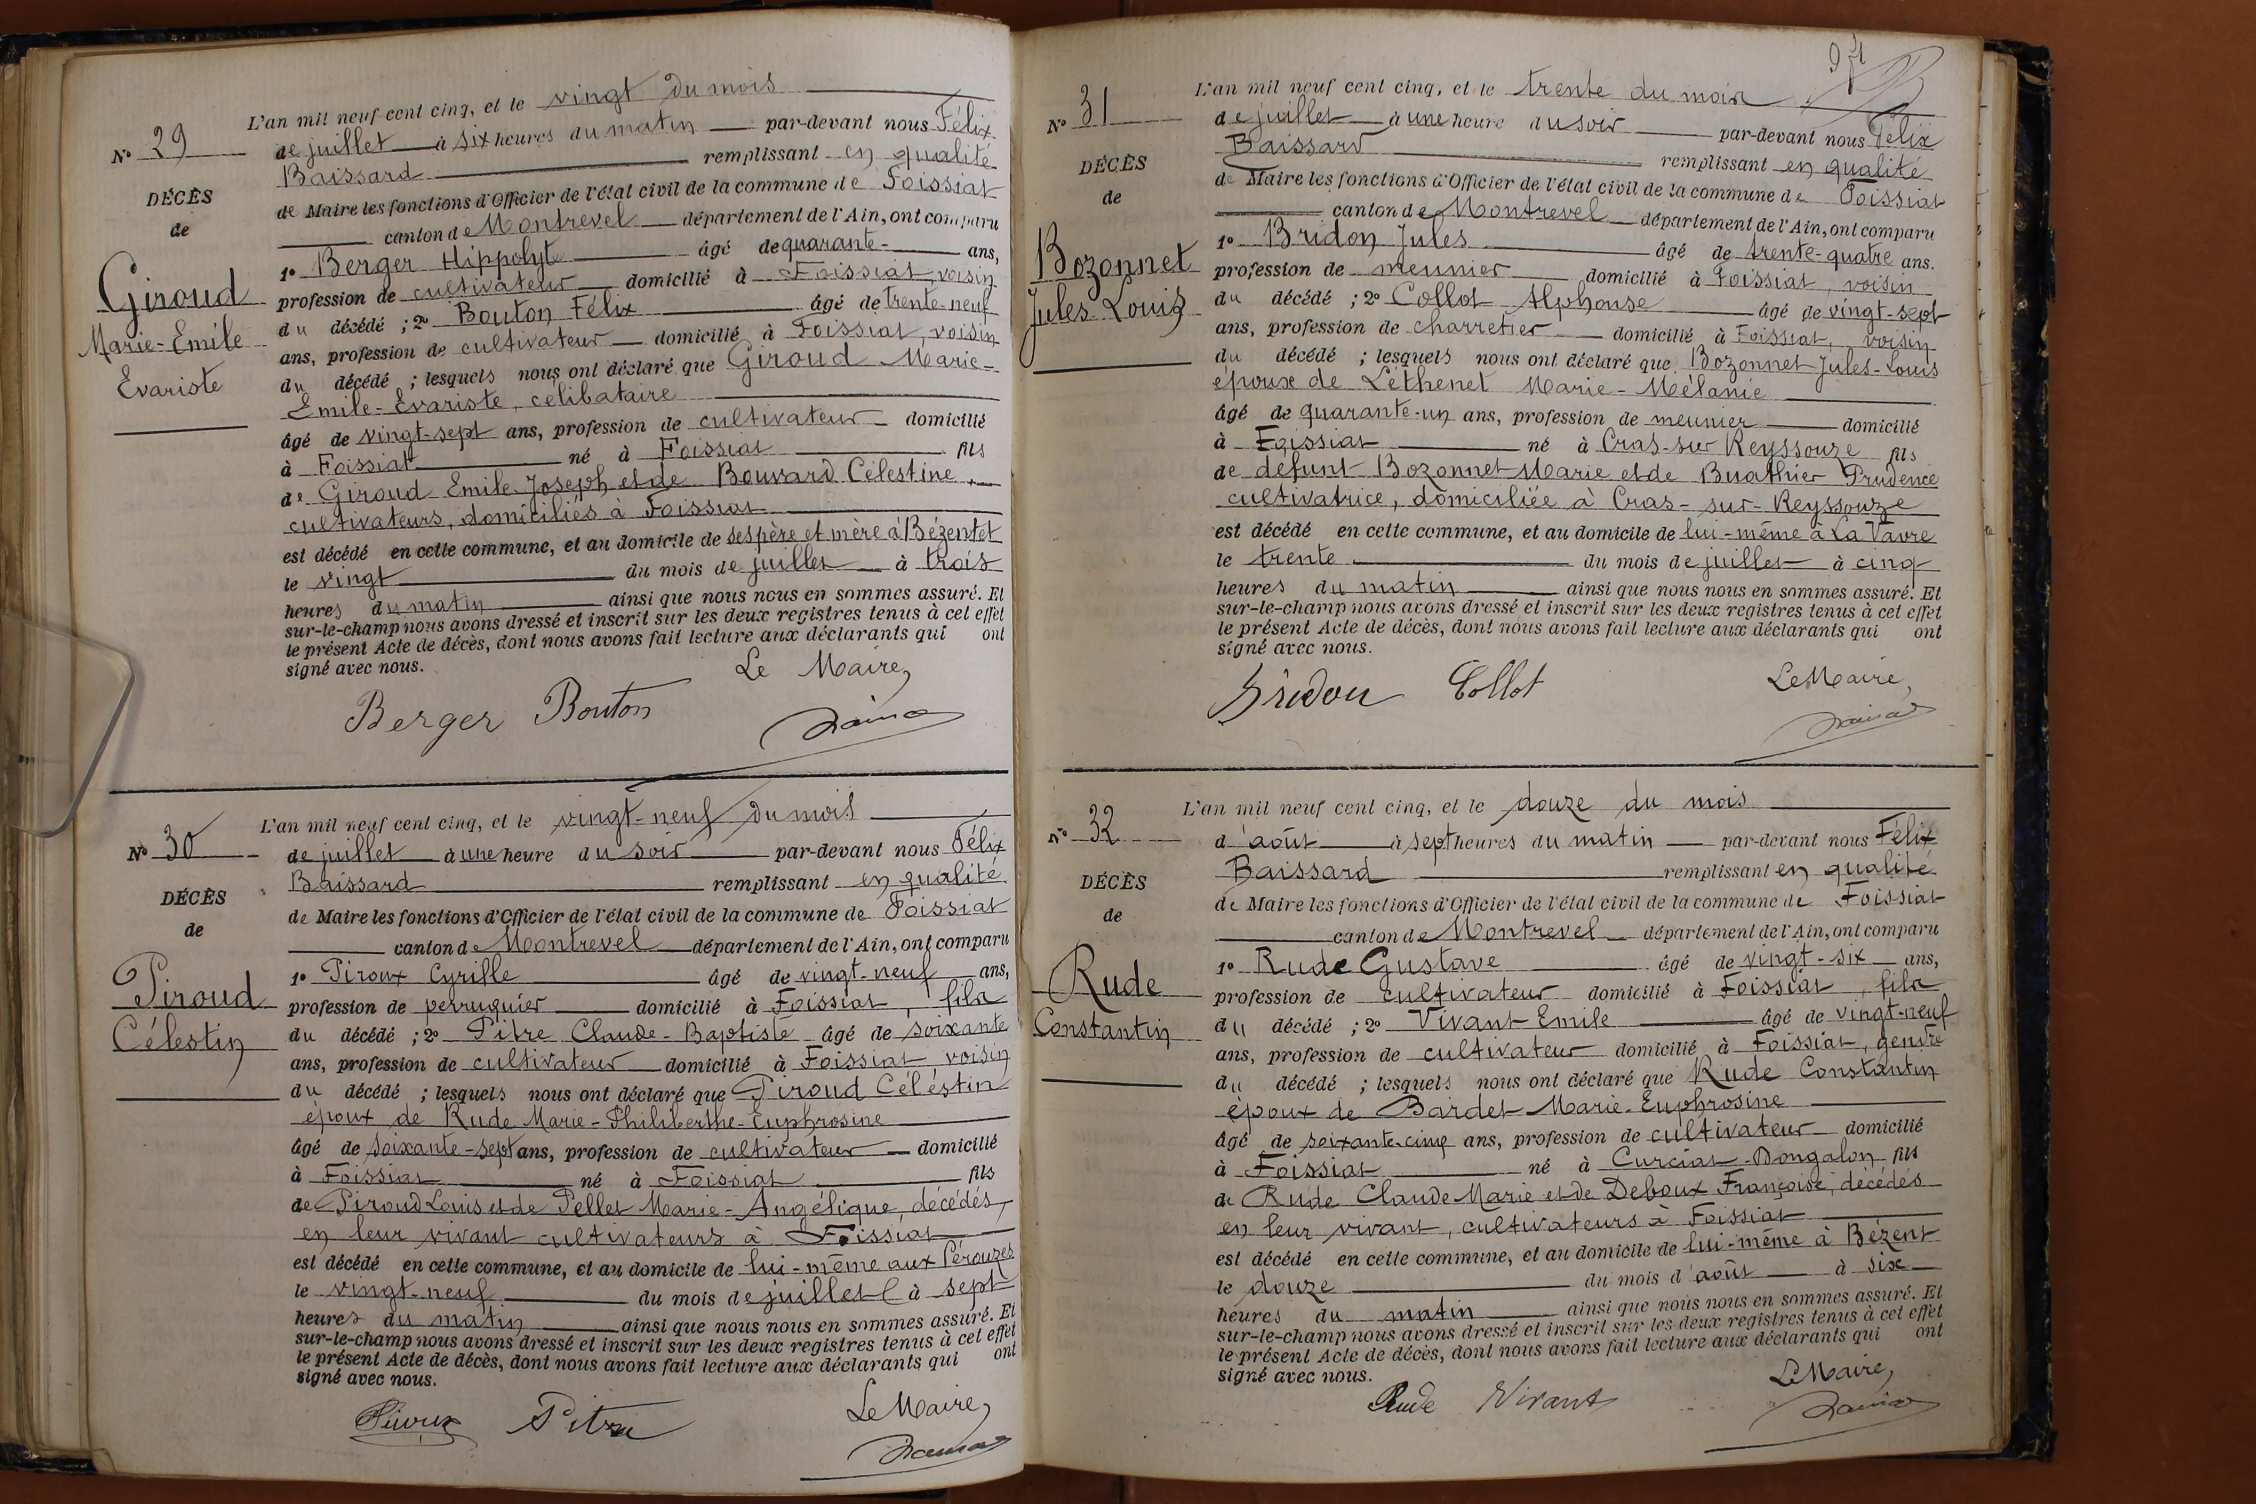 L'an mil neuf cent cinq, et le vingt du mois
No 29
de juillet à six heures du matin par-devant nous Félix
Baissard remplissant en qualité
DÉCÈS
de Maire les fonctions d'Officier de l'état civil de la commune de Foissiat
de
canton de Montrevel département de l'Ain, ont comparu
1o Berger Hippolyte âgé de quarante- ans,
Giroud
profession de cultivateur domicilié à Foissiat, voisin
du décédé ; 2o Bouton Félix âgé de trente-neuf
Marie-Emile
ans, profession de cultivateur domicilié à Foissiat, voisin
Evariste
du décédé ; lesquels nous ont déclaré que Giroud Marie-
Emile-Evariste, célibataire
âgé de vingt-sept ans, profession de cultivateur domicilié
à Foissiat né à Foissiat fils
de Giroud Emile-Joseph et de Bouvard Célestine,
cultivateurs, domiciliés à Foissiat
est décédé en cette commune, et au domicile de ses père et mère à Bézentet
le vingt du mois de juillet à trois
heures du matin ainsi que nous nous en sommes assuré. Et
sur-le-champ nous avons dressé et inscrit sur les deux registres tenus à cet effet
le présent Acte de décès, dont nous avons fait lecture aux déclarants qui ont
signé avec nous.
Le Maire,
Berger Bouton
L'an mil neuf cent cinq, et le vingt-neuf du mois
No 30
de juillet à une heure du soir par-devant nous Félix
Baissard remplissant en qualité
DÉCÈS
de Maire les fonctions d'Officier de l'état civil de la commune de Foissiat
de
canton de Montrevel département de l'Ain, ont comparu
1o Piroux Cyrille âgé de vingt-neuf ans,
Piroud
profession de perruquier domicilié à Foissiat, fils
Célestin
du décédé ; 2o Pitre Claude-Baptiste âgé de soixante
ans, profession de cultivateur domicilié à Foissiat voisin
du décédé ; lesquels nous ont déclaré que Piroud Céléstin
époux de Rude Marie-Philiberthe-Euphrosine
âgé de soixante-sept ans, profession de cultivateur domicilié
à Foissiat né à Foissiat fils
de Piroud Louis et de Pellet Marie-Angélique, décédés,
en leur vivant cultivateurs à Foissiat
est décédé en cette commune, et au domicile de lui-même aux Pérouzes
le vingt-neuf du mois de juillet à sept
heures du matin ainsi que nous nous en sommes assuré. Et
sur-le-champ nous avons dressé et inscrit sur les deux registres tenus à cet effet
le présent Acte de décès, dont nous avons fait lecture aux déclarants qui ont
signé avec nous.
Le Maire,
Piroux Pitre
L'an mil neuf cent cinq, et le trente du mois
No 31
de juillet à une heure du soir par-devant nous Félix
Baissard remplissant en qualité
DÉCÈS
de Maire les fonctions d'Officier de l'état civil de la commune de Foissiat
de
canton de Montrevel département de l'Ain, ont comparu
1o Bridon Jules âgé de trente-quatre ans.
Bozonnet
profession de meunier domicilié à Foissiat, voisin
Jules-Louis
du décédé ; 2o Collot Alphonse âgé de vingt-sept
ans, profession de charretier domicilié à Foissiat, voisin
du décédé ; lesquels nous ont déclaré que Bozonnet Jules-Louis
époux de Léthenet Marie-Mélanie
âgé de quarante-un ans, profession de meunier domicilié
à Foissiat né à Cras-sur Reyssouze fils
de défunt Bozonnet Marie et de Buathier Prudence
cultivatrice, domiciliée à Cras-sur-Reyssouze
est décédé en cette commune, et au domicile de lui-même à La Vavre
le trente du mois de juillet à cinq
heures du matin ainsi que nous nous en sommes assuré. Et
sur-le-champ nous avons dressé et inscrit sur les deux registres tenus à cet effet
le présent Acte de décès, dont nous avons fait lecture aux déclarants qui ont
signé avec nous.
Le Maire,
Bridon Collot
L'an mil neuf cent cinq, et le douze du mois
No 32
d'août à sept heures du matin par-devant nous Félix
Baissard remplissant en qualité
DÉCÈS
de Maire les fonctions d'Officier de l'état civil de la commune de Foissiat
de
canton de Montrevel département de l'Ain, ont comparu
1o Rude Gustave âgé de vingt-six ans,
Rude
profession de cultivateur domicilié à Foissiat, fils
Constantin
du décédé ; 2o Vivant Emile âgé de vingt-neuf
ans, profession de cultivateur domicilié à Foissiat, gendre
du décédé ; lesquels nous ont déclaré que Rude Constantin
époux de Bardet Marie-Euphrosine
âgé de soixante-cinq ans, profession de cultivateur domicilié
à Foissiat né à Curciat-Dongalon fils
de Rude Claude Marie et de Deboux Françoise, décédés
en leur vivant, cultivateurs à Foissiat
est décédé en cette commune, et au domicile de lui-même à Bézent
le douze du mois d'août à six
heures du matin ainsi que nous nous en sommes assuré. Et
sur-le-champ nous avons dressé et inscrit sur les deux registres tenus à cet effet
le présent Acte de décès, dont nous avons fait lecture aux déclarants qui ont
signé avec nous.
Le Maire,
Rude Vivant